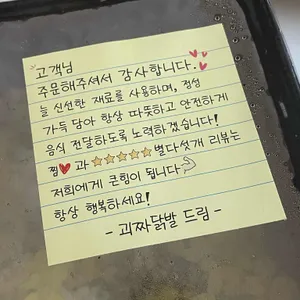 고객님
주문해주셔서 감사합니다.
늘 신선한 재료를 사용하며, 정성
가득 담아 항상 따뜻하고 안전하게
음식 전달하도록 노력하겠습니다!
찜♥과 ★★★★★별다섯개 리뷰는
저희에게 큰힘이 됩니다
항상 행복하세요!
- 괴짜닭발 드림 -